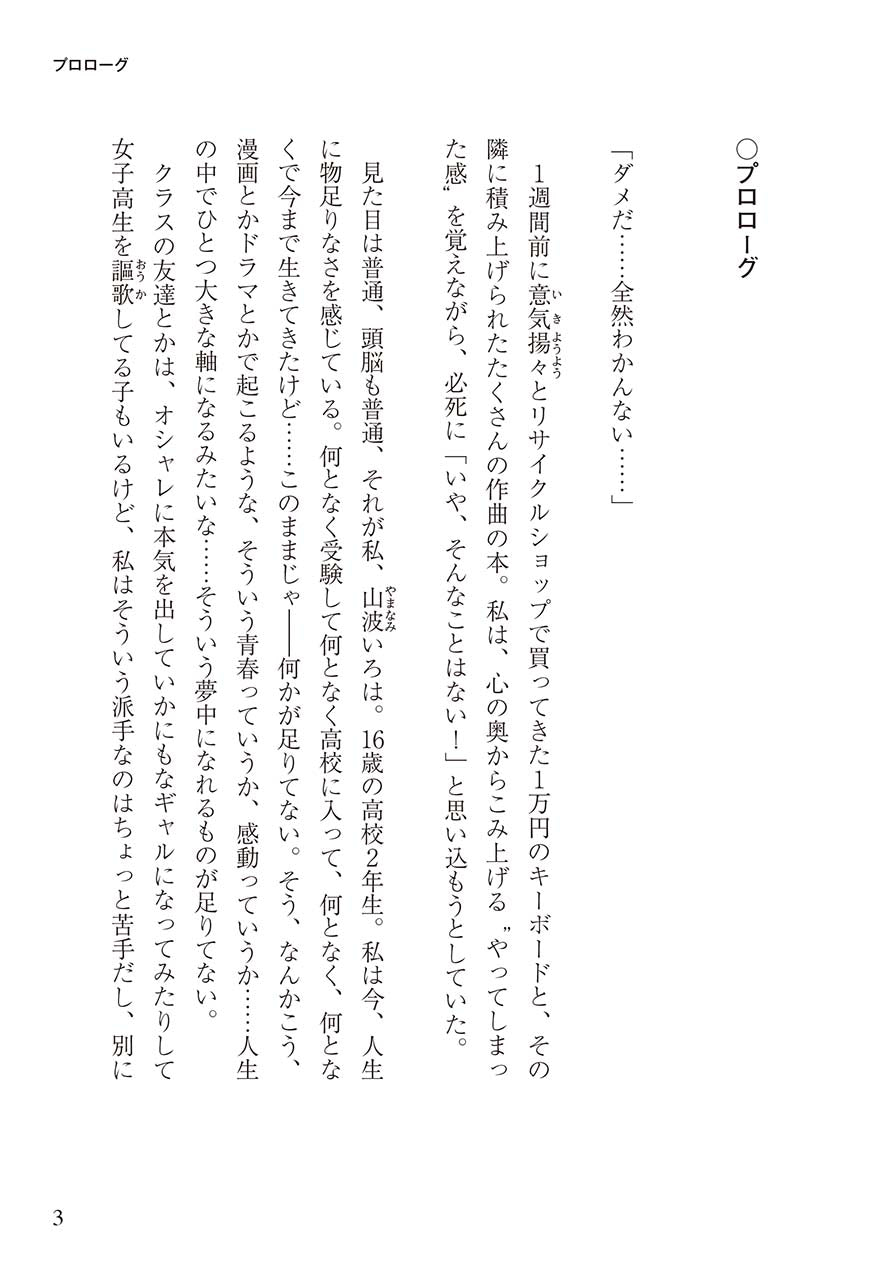 プロローグ
○プロローグ
「ダメだ……全然わかんない……」
1週間前に意気揚々とリサイクルショップで買ってきた1万円のキーボードと、その
隣に積み上げられたたくさんの作曲の本。私は、心の奥からこみ上げる〝やってしまっ
た感〟を覚えながら、必死に「いや、そんなことはない！」と思い込もうとしていた。
見た目は普通、頭脳も普通、それが私、山波いろは。16歳の高校2年生。私は今、人生
に物足りなさを感じている。何となく受験して何となく高校に入って、何となく、何とな
くで今まで生きてきたけど……このままじゃ――何かが足りてない。そう、なんかこう、
漫画とかドラマとかで起こるような、そういう青春っていうか、感動っていうか……人生
の中でひとつ大きな軸になるみたいな……そういう夢中になれるものが足りてない。
クラスの友達とかは、オシャレに本気を出していかにもなギャルになってみたりして
女子高生を謳歌してる子もいるけど、私はそういう派手なのはちょっと苦手だし、別に
いきようよう
やまなみ
おうか
3